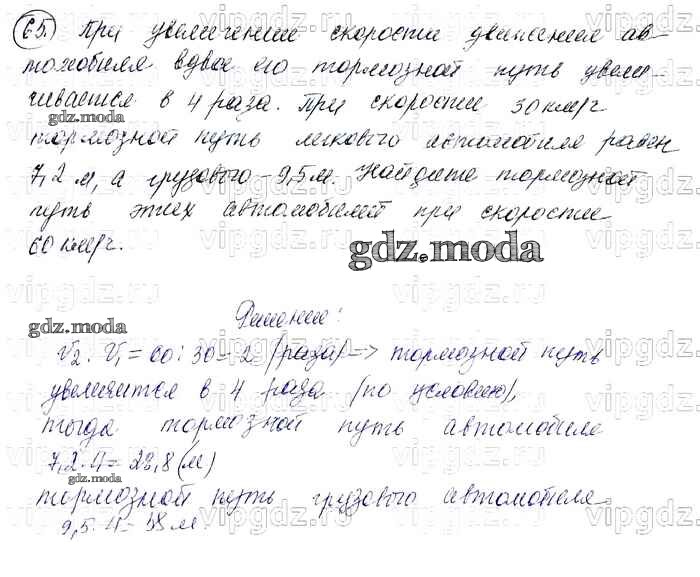 65. При увеличении скорости движения ав-
томобиля вдвое его тормозной путь увели-
чивается в 4 раза. При скорости 30 км/г
gdz.moda
тормозной путь легкового автомобиля равен
7,2 м, а грузового - 9,5 м. Найдите тормозной
путь этих автомобилей при скорости
60 км/г.
gdz.moda
Решение:
gdz.moda
V₂ : V₁ = 60 : 30 = 2 (раза) => тормозной путь
увеличится в 4 раза (по условию),
тогда тормозной путь автомобиля
7,2 · 4 = 28,8 (м)
gdz.moda
тормозной путь грузового автомобиля
9,5 · 4 = 38 м.
vipgdz.ru